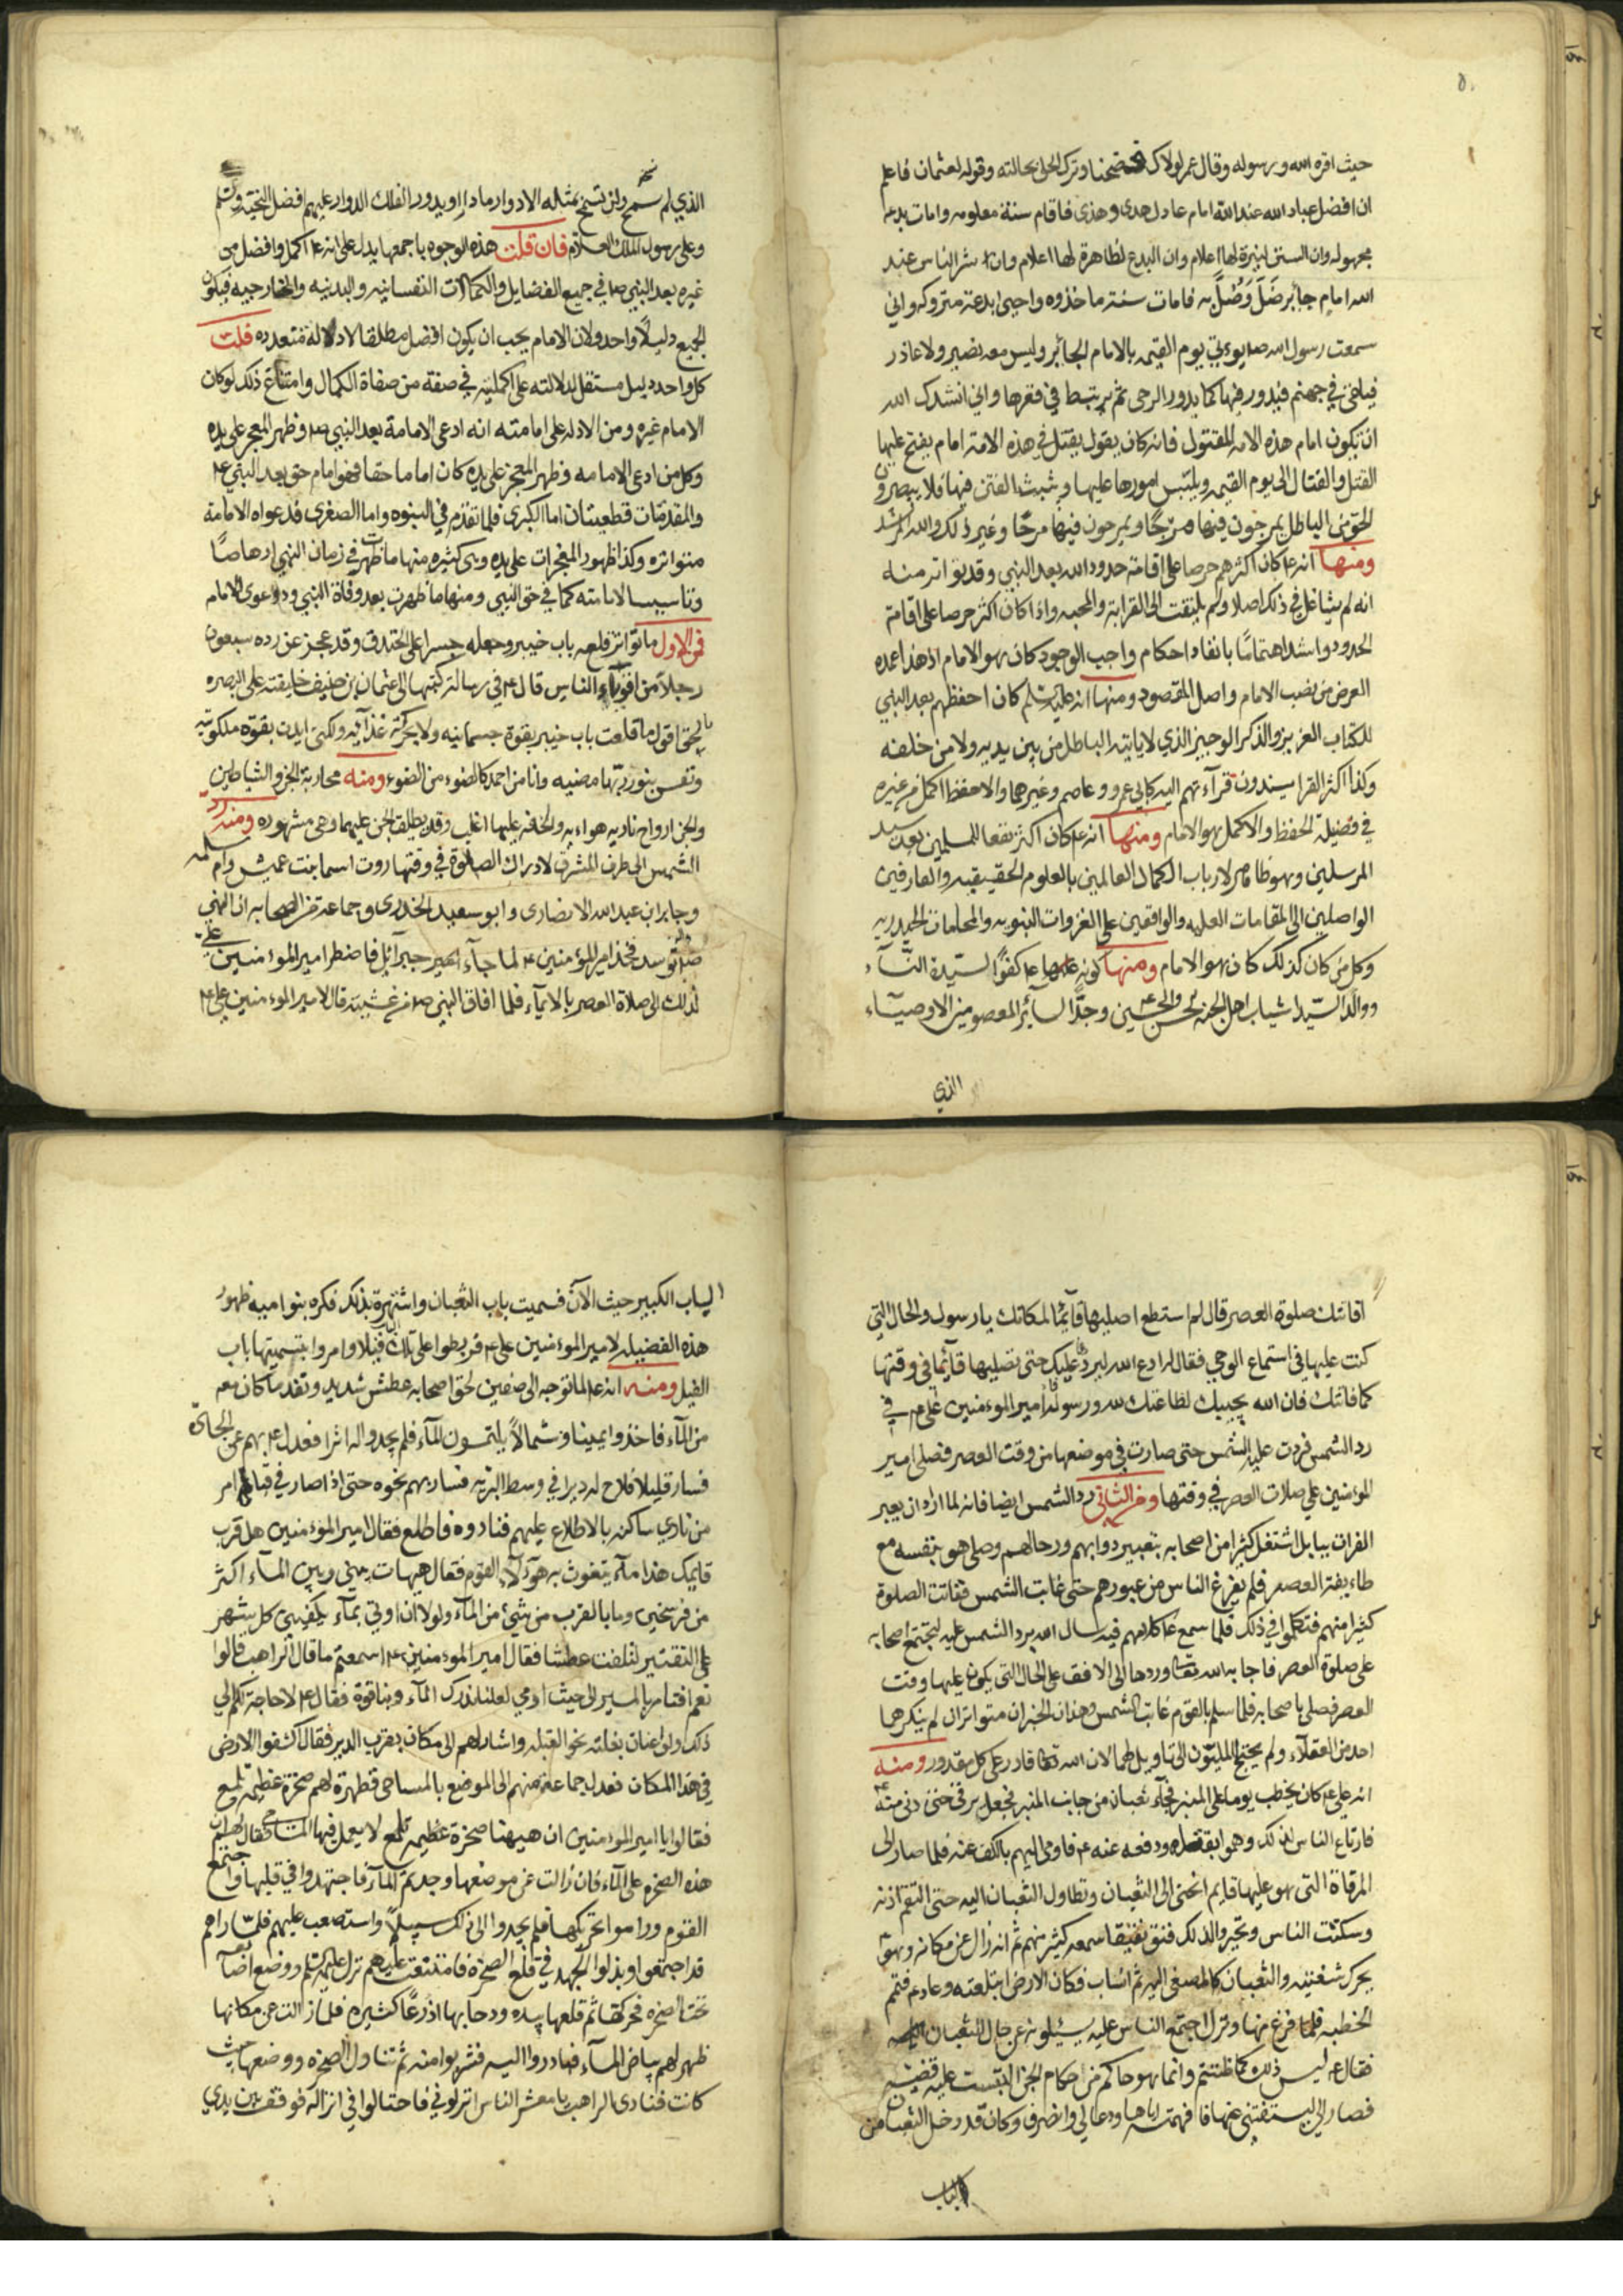 حيث اقره الله ورسوله وقال عمر لولاك لافتضحنا وترك الحلى بحالته وقوله لعثمان فاعلم
ان افضل عباد الله عند الله امام عادل هدى وهدى فاقام سنة معلومه وامات بدعه
مجهوله وان السنن لنيرة لها اعلام وان البدع لظاهرة لها اعلام وان شر الناس عند
الله امام جائر ضَلّ وَضُلَّ به فامات سنة ماخذوه واحيى بدعة متروكه واني
سمعت رسول الله ص يوتى يوم القيمه بالامام الجائر وليس معه نصير ولا عاذر
فيلقى في جهنم فيدور فيها كما يدور الرحى ثم يرتبط في قعرها واني انشدك الله
ان تكون امام هذه الامه المقتول فانه كان يقول يقتل في هذه الامة امام يفتح عليها
القتل والقتال الى يوم القيمه ويلبّس امورها عليها ويثبث الفتن فيها فلا يبصرون
الحق من الباطل يمرجون فيها مرجًا ويمرجون فيها مرجًا وغير ذلك والله المرشد
ومنها انه ع كان اكثرهم حرصا على اقامة حدود الله بعد النبي وقد تواتر منه
انه لم يشاغل في ذلك اصلا ولم يلتفت الى القرابة والمحبه واذا كان اكثر حرصا على اقامة
الحدود واشد اهتمامًا بانفاد احكام واجب الوجود كان هو الامام اذ هذا عمدة
الغرض من نصب الامام واصل المقصود ومنها انه عليه السلم كان احفظهم بعد النبي
للكتاب العزيز والذكر الوجيز الذي لا ياتيه الباطل من بين يديه ولا من خلفه
وكذا اكثر القرا يسندون قرآءتهم اليه كابي عمرو وعاصم وغيرهما والاحفظ اكمل من غيره
في فضيلة الحفظ والاكمل هو الامام ومنها انه ع كان اكثر نفعا للمسلمين بعد سيد
المرسلين وهو ظاهر لارباب الكمال العالمين بالعلوم الحقيقيه والعارفين
الواصلين الى المقامات العليه والواقفين على الغزوات النبويه والمحامات الحيدريه
وكل من كان كذلك كان هو الامام ومنها كونه ع كفوًا لسيدة النسآء
ووالد السيّدا شباب اهل الجنه الحسن والحسين وجدًّا لسآئر المعصومين الاوصيآء
الذي
الذي لم تسمح ولن تسمح بمثله الادوار مادار او يدور الفلك الدوار عليهم افضل التحية والسلم
وعلى رسول الملك العلام فان قلت هذه الوجوه باجمعها يدل على انه ع اكمل وافضل من
غيره بعد النبي ص في جميع الفضايل والكمالات النفسانيه والبدنيه والخارجيه فيكون
الجميع دليلًا واحدا ولان الامام يجب ان يكون افضل مطلقا لا دلالة متعدده قلت
كل واحد دليل مستقل لدلالته على اكمليته في صفة من صفاة الكمال وامتناع ذلك لو كان
الامام غيره ومن الادله على امامته انه ادعى الامامة بعد النبي ص وظهر المعجز على يده
وكل من ادعى الامامه وظهر المعجز على يده كان اماما حقا فهو امام حق بعد النبي ع
والمقدمتان قطعيتان اما الكبرى فلما تقدم في النبوه واما الصغرى فدعواه الامامة
متواتره وكذا ظهور المعجزات على يده وهي كثيره منها ما ظهرت في زمان النبي ارهاصًا
وتاسيسا لامامته كما في حق النبي ومنها ما ظهرت بعد وفاة النبي ودعوى الامام
فمن الاول ما تواتر قلعه باب خيبر وجعله جسرا على الخندق وقد عجز عن رده سبعون
رجلًا من اقويآء الناس قال ع في رسالة كتبها الى عثمان بن حنيف خليفته على البصره
بالحق اقول ما قلعت باب خيبر بقوة جسمانيه ولا بحركة غذآئيه ولكنى ايدت بقوة ملكوتيه
ونفس بنور ربها مضيه وانا من احمد كالضوء من الضوء ومنه محاربة الجن والشياطين
والجن ارواح ناريه هواءيه والخفة عليهما اغلب وقد يطلق الجن عليهما وهي مشهوره ومنه رد
الشمس الى طرف المشرق لادراك الصلوة في وقتها روت اسما بنت عميس وام سلمه
وجابر ابن عبد الله الانصارى وابو سعيد الخدرى وجماعة من الصحابه ان النبي
ص توسد فخذ امير المؤمنين ع لما جآءه جبرآئل فاضطر امير المؤمنين علي
لذلك الى صلاة العصر بالايمآء فلما افاق النبي ص من غشيته قال لامير المؤمنين علي ع
افاتتك صلوة العصر قال لم استطع اصليها قآئما لمكانك يا رسول والحال التي
كنت عليها في استماع الوحي فقال له ادع الله ليرد عليك حتى تصليها قآئما في وقتها
كما فاتتك فان الله يجيبك لطاعتك لله ورسوله فدعا امير المؤمنين علي ع في
رد الشمس فردت عليه الشمس حتى صارت في موضعها من وقت العصر فصلى امير
المؤمنين علي صلات العصر في وقتها ومن الثاني رد الشمس ايضا فانه لما اراد ان يعبر
الفرات ببابل اشتغل كثيرا من اصحابه بتعبير دوابهم ورحالهم وصلى هو بنفسه مع
طاءيفة العصر فلم يفرغ الناس من عبورهم حتى غابت الشمس ففاتت الصلوة
كثيرا منهم فتكلموا في ذلك فلما سمع ع كلامهم فيه سال الله برد الشمس عليه ليجتمع اصحابه
على صلوة العصر فاجابه الله تعالى وردها الى الافق على الحال التي يكون عليها وقت
العصر فصلى باصحابه فلما سلم بالقوم غابت الشمس وهذان الخبران متواتران لم ينكرهما
احد من العقلآء ولم يحتج المليّون الى تاويل لهما لان الله تعالى قادر على كل مقدور ومنه
انه علي ع كان يخطب يوما على المنبر فجآء ثعبان من جانب المنبر فجعل يرقى حتى دنى منه
فارتاع الناس لذلك وهموا بقتله ودفعه عنه ع فاومى اليهم بالكف عنه فلما صار الى
المرقاة التي هو عليها قايم انحنى الى الثعبان وتطاول الثعبان اليه حتى التقم اذنه
وسكتت الناس وتحيروا لذلك فنق نقيقا سمعه كثير منهم ثم انه زال عن مكانه وهو
يحرك شفتيه والثعبان كالمصغى اليه ثم انساب فكان الارض ابتلعته وعاد ع فتمم
الخطبه فلما فرغ منها ونزل اجتمع الناس عليه يسئلونه عن حال الثعبان
فقال ع ليس ذلك كما ظننتم وانما هو حاكم من حكام الجن التبست عليه قضيه
فصار الي ليستفتني عنها فافهمته اياها ودعا لي وانصرف وكان قد دخل الثعبان من
الباب
الباب الكبير حيث الآن فسميت باب الثعبان واشتهرة بذلك فكره بنو اميه ظهور
هذه الفضيله لامير المؤمنين علي ع فربطوا على تلك الباب فيلا وامروا بتسميتها باب
الفيل ومنه انه ع لما توجه الى صفين لحق اصحابه عطش شديد ونفد ما كان معه
من المآء فاخذوا يمينا وشمالاً يلتمسون المآء فلم يجدوا له اثرا فعدل ع بهم عن الجادة
فسار قليلا فلاح له دير في وسط البريه فسار بهم نحوه حتى اذا صار في فنائه امر
من نادى ساكنه بالاطلاع عليهم فنادوه فاطلع فقال امير المؤمنين هل قرب
قايمك هذا مآء يتغوث به هؤلآء القوم فقال هيهات بيني وبين المآء اكثر
من فرسخين وما بالقرب من شئ من المآء ولولا ان اوتي بمآء يكفيني كل شهر
على التقتير لتلفت عطشا فقال امير المؤمنين ع اسمعتم ما قال الراهب قالوا
نعم افتامرنا بالمسير الى حيث اومي لعلنا ندرك المآء وبنا قوة فقال ع لا حاجة لكم الى
ذلك ولوى عنان بغلته نحو القبله واشار لهم الى مكان بقرب الدير فقال اكشفوا الارض
في هذا المكان فعدل جماعة منهم الى الموضع بالمساحى فظهرة لهم صخرة عظيمه تلمع
فقالوا يا امير المؤمنين ان هيهنا صخرة عظيمه تلمع لا يعمل فيها المساحى فقال لهم ان
هذه الصخره على المآء فان زالت عن موضعها وجدتم المآء فاجتهدوا في قلبها واجتمع
القوم وراموا تحريكها فلم يجدوا الى ذلك سبيلًا واستصعب عليهم فلما راهم
قد اجتمعوا وبذلوا الجهد في قلع الصخره فامتنعت عليهم نزل عليه السلم ووضع اصابعه
تحت الصخره فحركها ثم قلعها بيده ودحا بها اذرعًا كثيره فلما زالت عن مكانها
ظهر لهم بياض المآء فبادروا اليه فشربوا منه ثم تناول الصخره ووضعها حيث
كانت فنادى الراهب يا معشر الناس انزلوني فاحتالوا في انزاله فوقف بين يدي